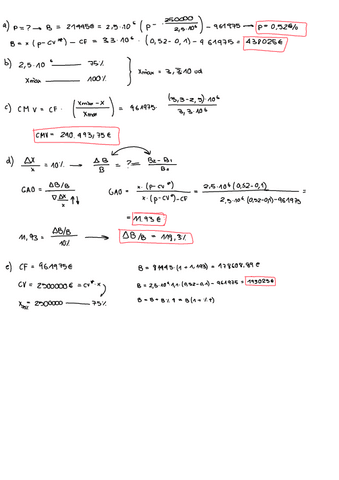 a) P = ? → B = 211445€ = 2,5·10⁶ (P - 250000/2,5·10⁶) - 961975 → P = 0,52€/u
B = x · (P - CV*) - CF = 3,3·10⁶ · (0,52 - 0,1) - 961975 = 438025€
b) 2,5·10⁶ — 75%
xmax — 100% } xmax = 3,3̄10 ud
c) CMV = CF · (xmax - x / xmax) = 961975 · (3,3 - 2,5)·10⁶ / 3,3·10⁶
CMV = 240.493,75€
d) Δx/x = 10% → ΔB/B = ? = B₂ - B₁ / B₁
GAO = ΔB/B / ∇Δx/x ↑↓ GAO = x·(P - CV*) / x·(P - CV*) - CF = 2,5·10⁶ (0,52 - 0,1) / 2,5·10⁶ (0,52 - 0,1) - 961975 =
= 11,93€
11,93 = ΔB/B / 10% → ΔB/B = 119,3%
e) CF = 961975€ B = 81445 (1 + 1,193) = 178608,89€
CV = 250000€ = CV* · x B = 2,5·10⁶·1,1·(0,52 - 0,1) - 961975 = 193025€
x = 2500000 — 75% B = B + B % ↑ = B (1 + % ↑)